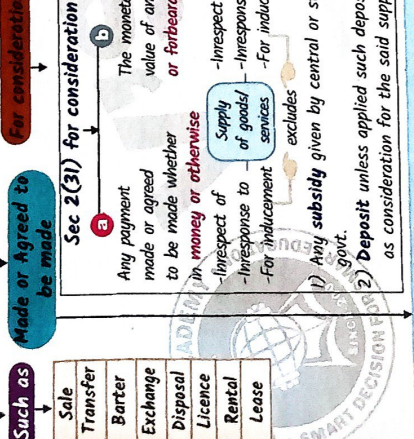 Such as
Sale
Transfer
Barter
Exchange
Disposal
Licence
Rental
Lease
Made or Agreed to
be made
For consideration
Sec 2(31) for consideration
a
Any payment
made or agreed
to be made whether
in money or otherwise
-Inrespect of
-Inresponse to
-For inducement
Supply
of goods/
services
b
The moneta
value of an
or forbeara
-Inrespect
-Inrespons
-For induc
excludes
1) Any subsidy given by central or s
govt.
2) Deposit unless applied such depos
as consideration for the said supp
SMART DECISION FOR